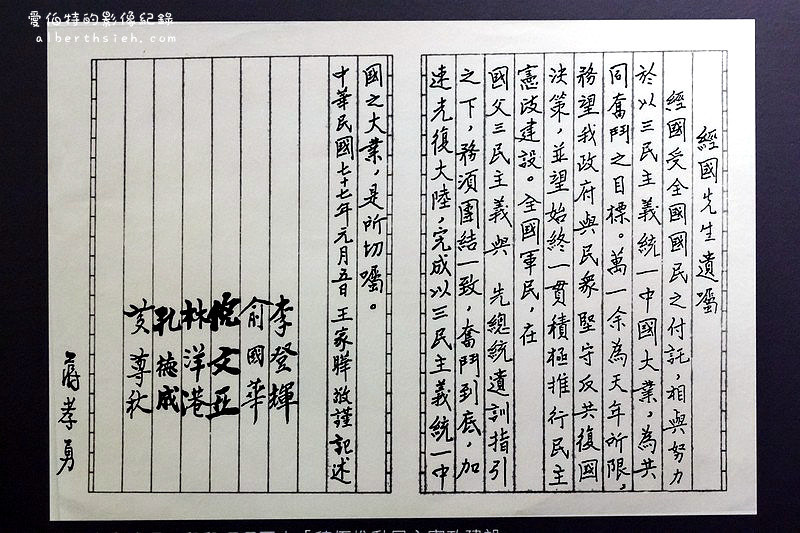 愛伯特的影像紀錄
alberthsieh.com
經國先生遺囑
經國受全國國民之付託，相與努力
於以三民主義統一中國大業，為共
同奮鬥之目標。萬一余為天年所限，
務望我政府與民衆堅守反共復國
決策，並望始終一貫積極推行民主
憲政建設。全國軍民，在
國父三民主義與　先總統遺訓指引
之下，務須團結一致，奮鬥到底，加
速光復大陸，完成以三民主義統一中
國之大業，是所切囑。
中華民國七十七年元月五日　王家驊　敬謹記述
李登輝
俞國華
倪文亞
林洋港
孔德成
蔣孝勇